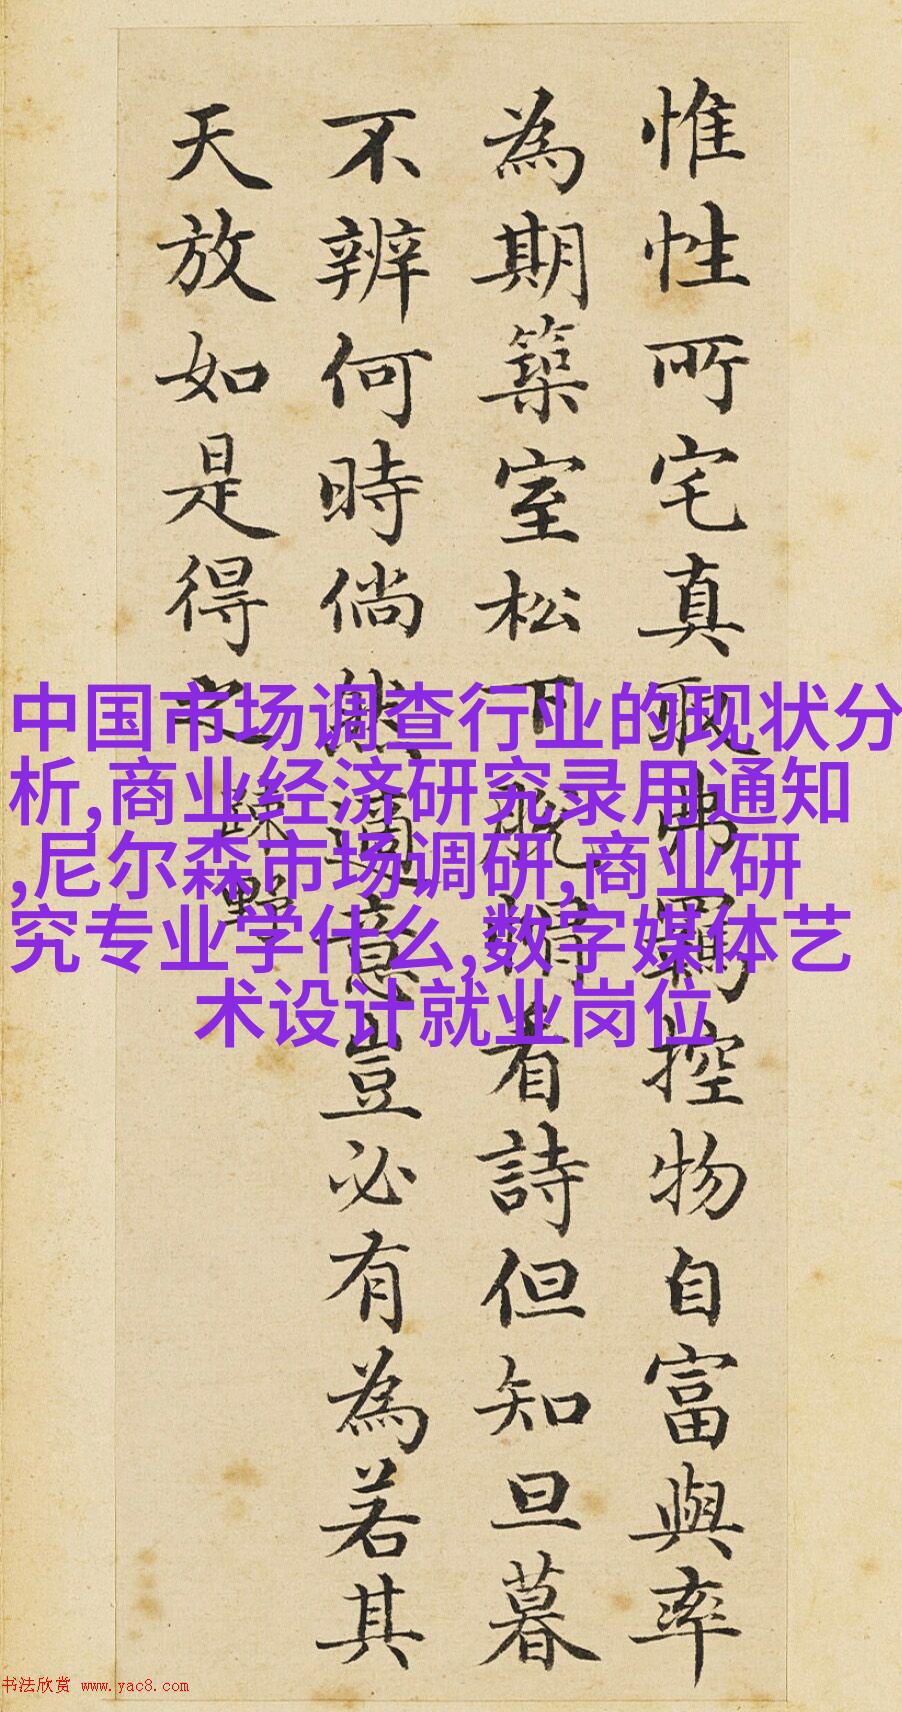 惟性所宅真取弗羈控物自富與率
為期築室松下脫帽看詩但知旦暮
不辨何時倘然適意豈必有為若其
天放如是得之
疎野
中国市场调查行业的现状分
析,商业经济研究录用通知
,尼尔森市场调研,商业研
究专业学什么,数字媒体艺
术设计就业岗位
书法欣赏 www.yac8.com